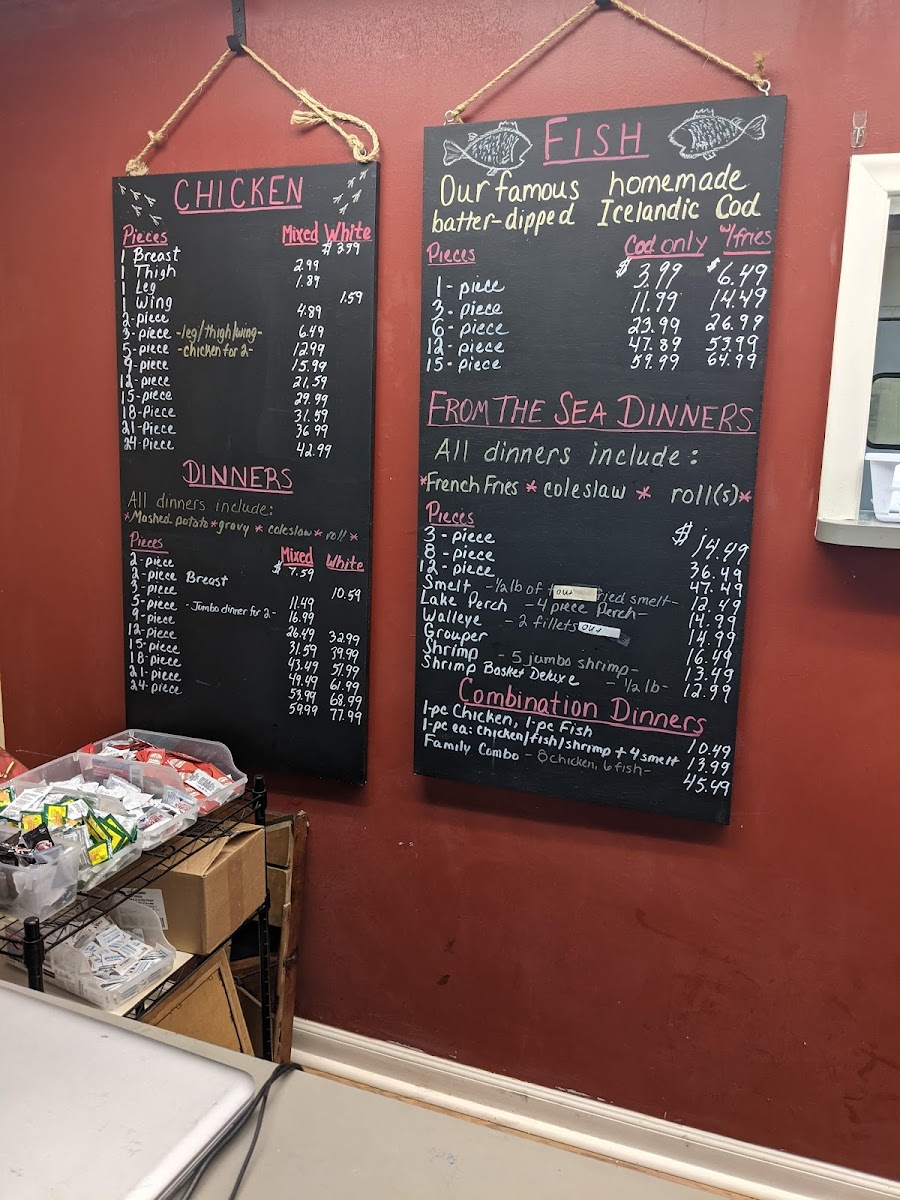 CHICKEN
Pieces Mixed White
1 Breast $3.99
1 Thigh 2.99
1 Leg 1.89
1 Wing 1.59
2-piece 4.89
3-piece -leg/thigh/wing- 6.49
5-piece -chicken for 2- 12.99
9-piece 15.99
12-piece 21.59
15-piece 29.99
18-Piece 31.59
21-Piece 36.99
24-Piece 42.99
DINNERS
All dinners include:
*Mashed potato*gravy * coleslaw * roll *
Pieces Mixed White
2-piece $7.59
2-piece Breast 10.59
3-piece 11.49
5-piece -Jumbo dinner for 2- 16.99
9-piece 26.49 32.99
12-piece 31.59 39.99
15-piece 43.49 51.99
18-piece 49.49 61.99
21-piece 53.99 68.99
24-piece 59.99 77.99
FISH
Our famous homemade
batter-dipped Icelandic Cod
Pieces Cod only w/fries
1-piece $3.99 $6.49
3-piece 11.99 14.49
6-piece 23.99 26.99
12-piece 47.89 53.99
15-piece 59.99 64.99
FROM THE SEA DINNERS
All dinners include:
*French Fries * coleslaw * roll(s)*
Pieces
3-piece $14.49
8-piece 36.49
12-piece 47.49
Smelt -½lb of out smelt- 12.49
Lake Perch -4 piece Perch- 14.99
Walleye -2 fillets out 14.99
Grouper 16.49
Shrimp -5 jumbo shrimp- 13.49
Shrimp Basket Deluxe -½lb- 12.99
Combination Dinners
1-pc Chicken, 1-pc Fish 10.49
1-pc ea: Chicken/fish/shrimp + 4 smelt 13.99
Family Combo -8 chicken, 6 fish- 45.49